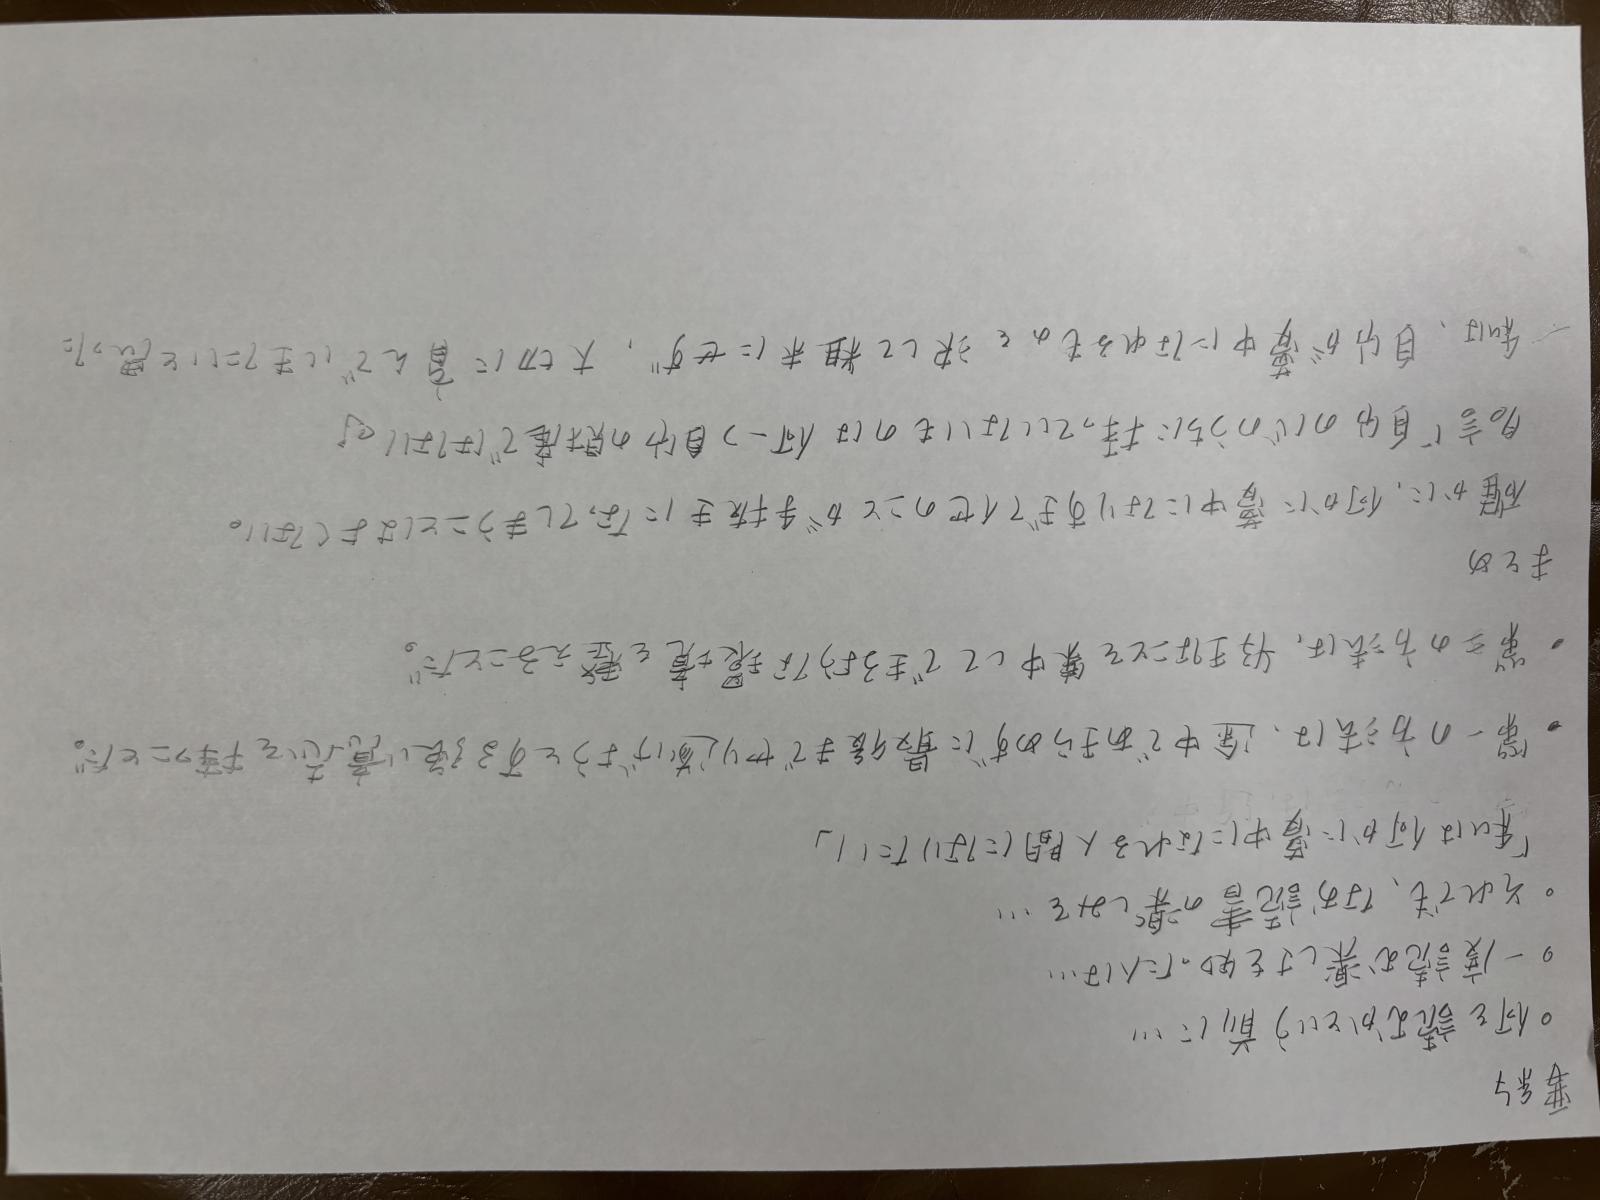 要約
○何を読むかという前に…
○一度読む楽しさを知った人は…
○それでも、なお読書の楽しみを…
「私は何かに夢中になれる人間になりたい」
・第一の方法は、途中であきらめずに最後までやり遂げようとする強い意志を持つことだ。
・第二の方法は、好きなことを集中してできるような環境を整えることだ。
まとめ
確かに、何かに夢中になりすぎて他のことが手抜きになってしまうことはよくない。
名言「自分の心のうちに持っていないものは何一つ自分の財産ではない。」
私は、自分が夢中になれるものを決して粗末にせず、大切に育んでいきたいと思った